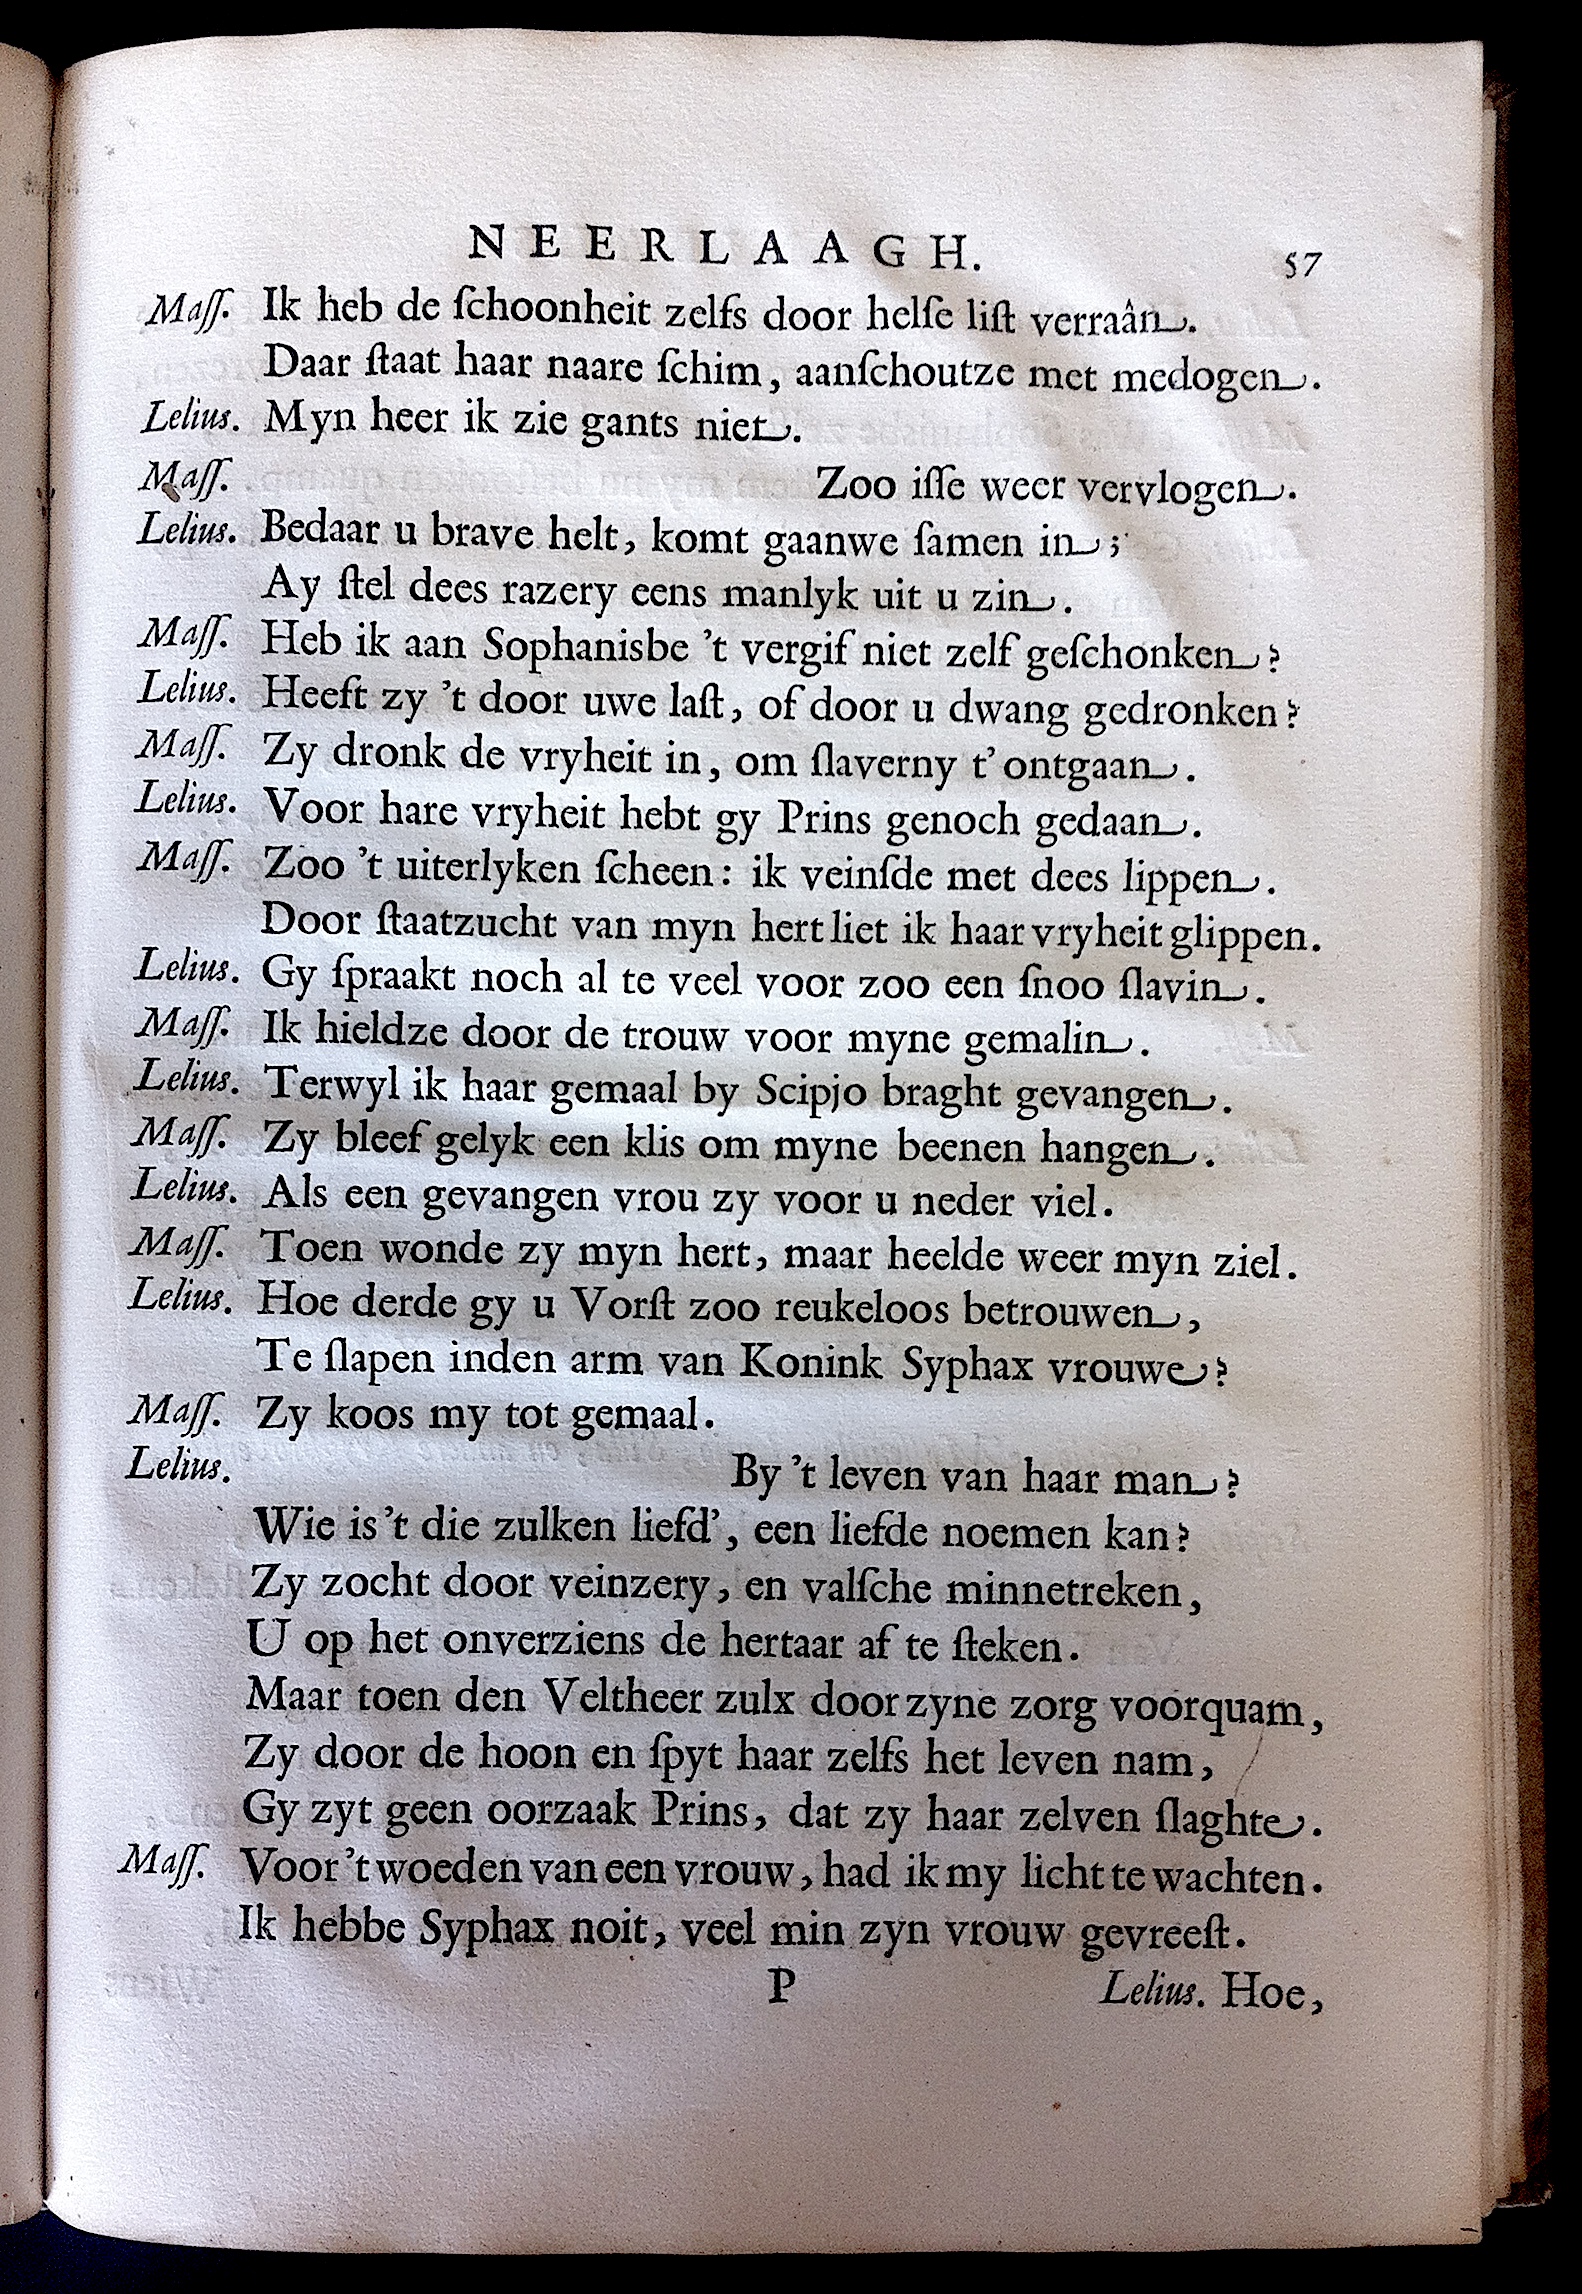 NEERLAAGH. 57
Maſſ. Ik heb de ſchoonheit zelfs door helſe liſt verraân.
Daar ſtaat haar naare ſchim, aanſchoutze met medogen.
Lelius. Myn heer ik zie gants niet.
Maſſ. Zoo iſſe weer vervlogen.
Lelius. Bedaar u brave helt, komt gaanwe ſamen in;
Ay ſtel dees razery eens manlyk uit u zin.
Maſſ. Heb ik aan Sophanisbe 't vergif niet zelf geſchonken?
Lelius. Heeft zy 't door uwe laſt, of door u dwang gedronken?
Maſſ. Zy dronk de vryheit in, om ſlaverny t' ontgaan.
Lelius. Voor hare vryheit hebt gy Prins genoch gedaan.
Maſſ. Zoo 't uiterlyken ſcheen: ik veinſde met dees lippen.
Door ſtaatzucht van myn hert liet ik haar vryheit glippen.
Lelius. Gy ſpraakt noch al te veel voor zoo een ſnoo ſlavin.
Maſſ. Ik hieldze door de trouw voor myne gemalin.
Lelius. Terwyl ik haar gemaal by Scipjo braght gevangen.
Maſſ. Zy bleef gelyk een klis om myne beenen hangen.
Lelius. Als een gevangen vrou zy voor u neder viel.
Maſſ. Toen wonde zy myn hert, maar heelde weer myn ziel.
Lelius. Hoe derde gy u Vorſt zoo reukeloos betrouwen,
Te ſlapen inden arm van Konink Syphax vrouwe?
Maſſ. Zy koos my tot gemaal.
Lelius. By 't leven van haar man?
Wie is 't die zulken liefd', een liefde noemen kan?
Zy zocht door veinzery, en valſche minnetreken,
U op het onverziens de hertaar af te ſteken.
Maar toen den Veltheer zulx door zyne zorg voorquam,
Zy door de hoon en ſpyt haar zelfs het leven nam,
Gy zyt geen oorzaak Prins, dat zy haar zelven ſlaghte.
Maſſ. Voor 't woeden van een vrouw, had ik my licht te wachten.
Ik hebbe Syphax noit, veel min zyn vrouw gevreeſt.
P Lelius. Hoe,